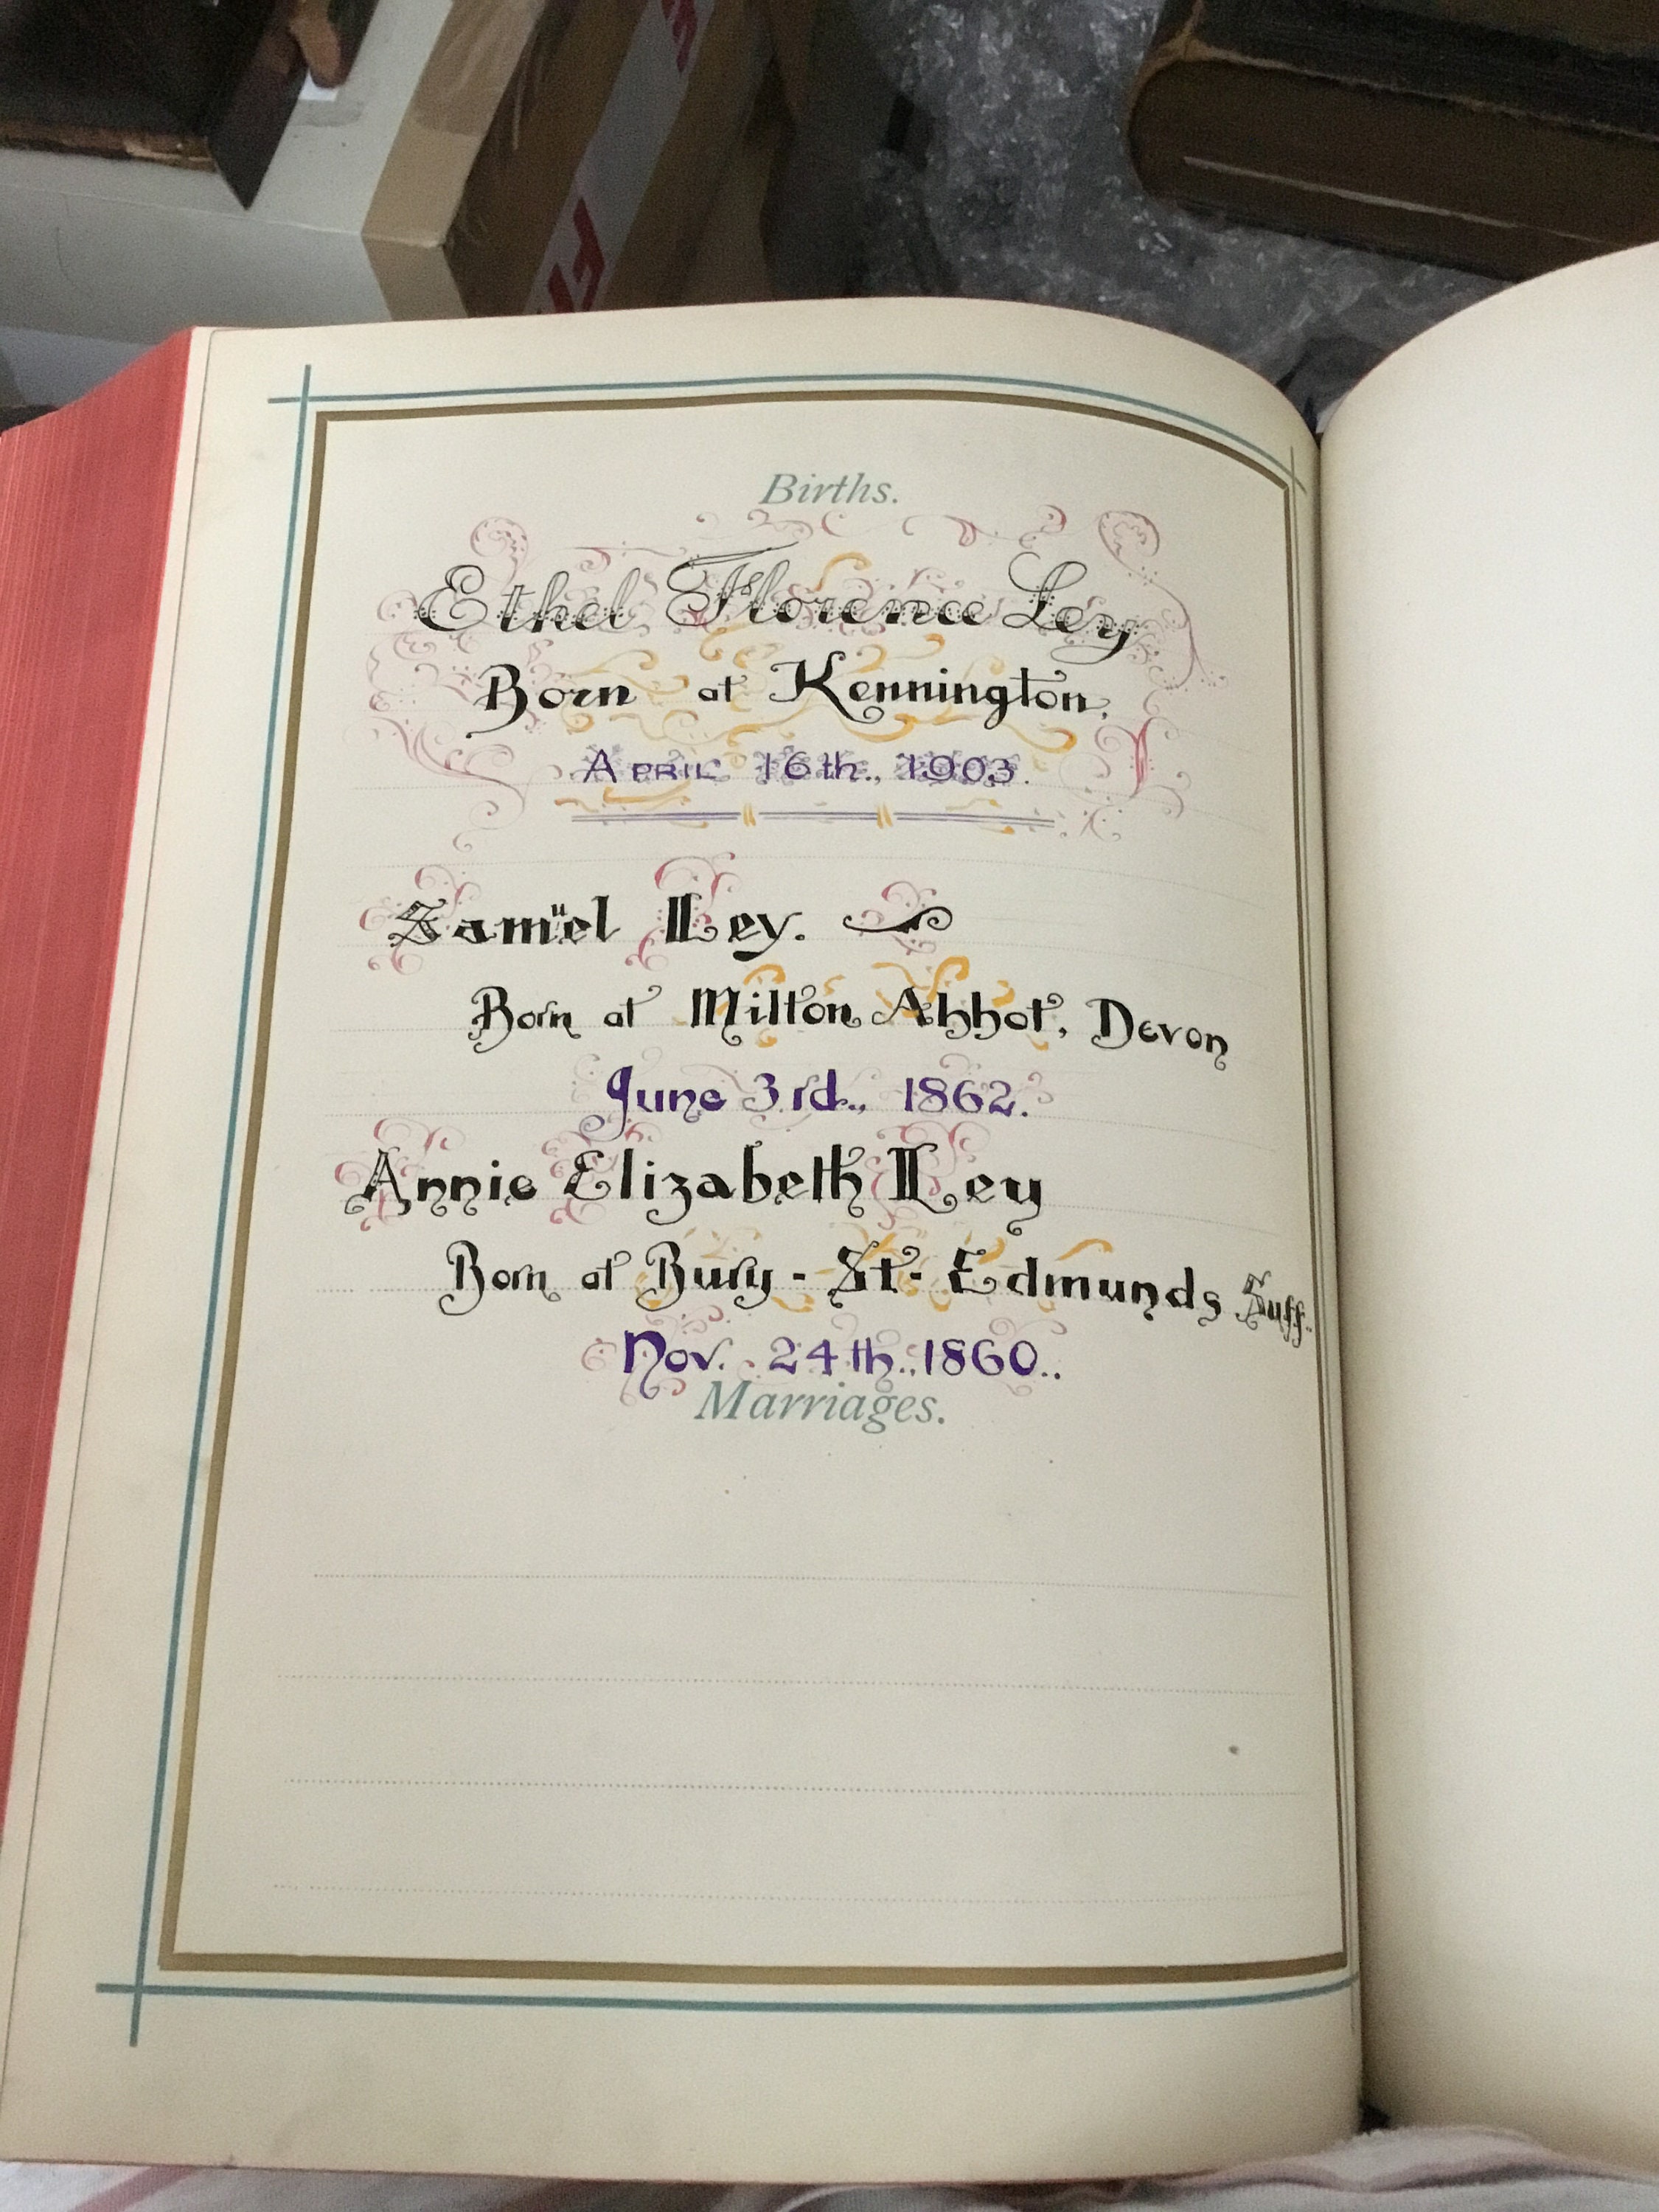 Births.
Ethel Florence Ley
Born at Kennington.
April 16th., 1903.
Samuel Ley.
Born at Milton Abbot, Devon
June 3rd., 1862.
Annie Elizabeth Ley
Born at Bury-St-Edmunds Suff.
Nov. 24th., 1860..
Marriages.